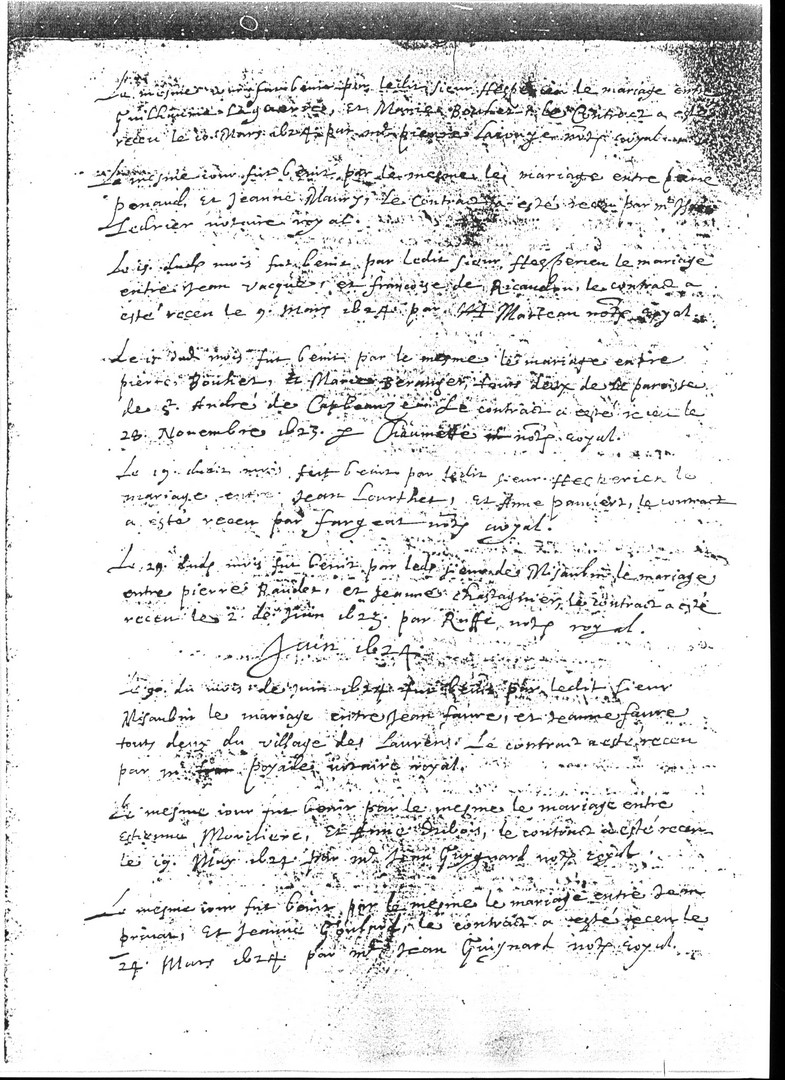 Le mesme iour fut benit par ledit sieur Hesperien le mariage entre
Guilhaume Lagarere, et Marie Bouhet le Contract a esté
receu le 10. Mars 1624. par mᵉ pierre notʳᵉ royal
Le mesme iour fut benit par le mesme le mariage entre pierre
penaud, et Jeanne Maury, Le Contract a esté receu par mᵉ
Ledrier notaire royal.
Le 15. dudᵗ mois fut benit par ledit sieur Hesperien le mariage
entre Jean Jacques, et françoise de Ricaudou, le contract a
esté receu le 9. Mars 1624. par Marteau notʳᵉ royal.
Le 15 dudᵗ mois fut benit par le mesme le mariage entre
pierre Bouhet, et Marie Beranger, tous deux de la paroisse
de Sᵗ. André de Le contract a esté receu le
28. Novembre 1623. p Chaumette notʳᵉ royal.
Le 19. dudit mois fut benit par ledit sieur Hesperien le
mariage entre Jean Lourthet, et Anne paniert, le contract
a esté receu par fargeat notʳᵉ royal.
Le 29. dudᵗ mois fut benit par ledᵗ sieur de Misaubin le mariage
entre pierre Baudet, et Jeanne Chastagnier, le contract a esté
receu le 2. de Juin 1623. par Ruffe notʳᵉ royal.
Juin 1624.
Le 90. du mois de Juin 1624 fut benit par ledit sieur
Misaubin le mariage entre Jean faure, et Jeanne faure
tous deux du village des Laurens. Le contract a esté receu
par mᵉ poyade notaire royal.
Le mesme iour fut benit par le mesme le mariage entre
Estienne Moriliere, et Anne Dubois, le contract a esté receu
le 19. May 1624 par mᵉ Jean Guignard notʳᵉ royal.
Le mesme iour fut benit par le mesme le mariage entre Jean
privat, et Jeanne Goulard, le contract a esté receu le
24. Mars 1624 par mᵉ Jean Guignard notʳᵉ royal.